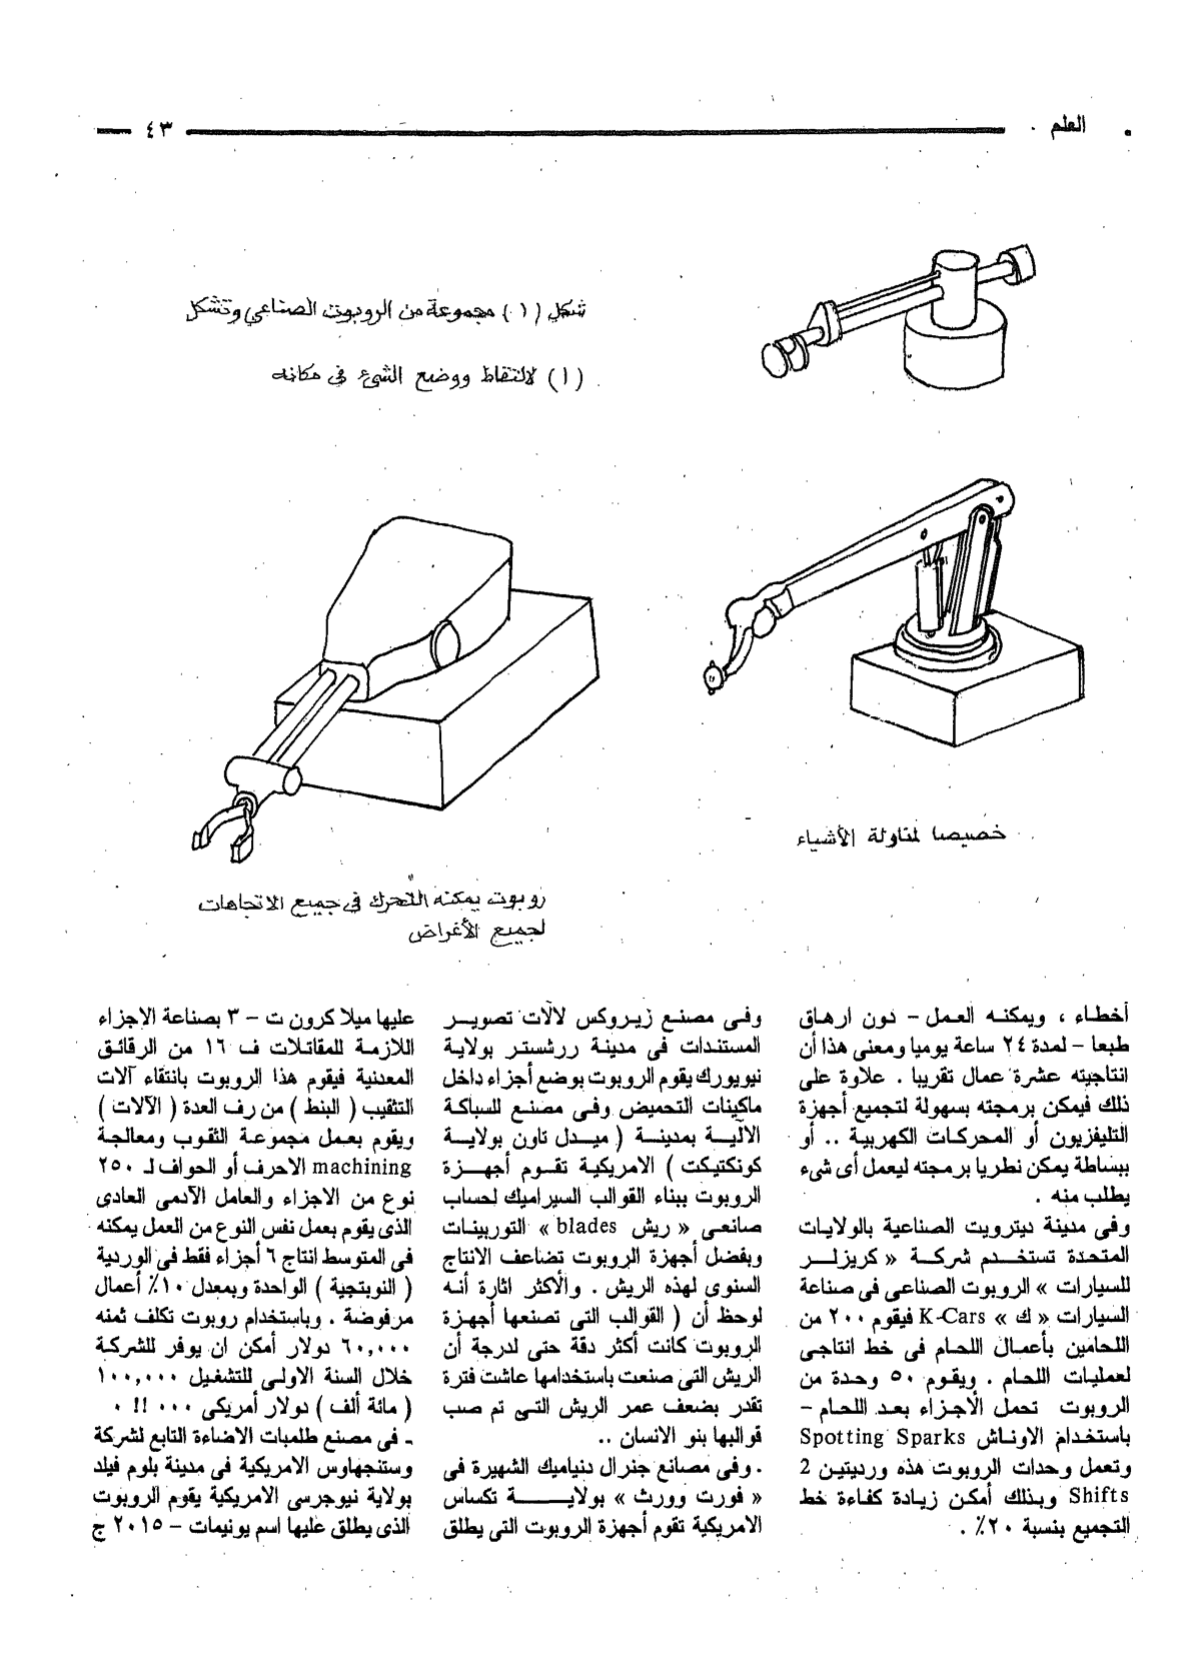 العلم
٤٣
شكل (١) مجموعة من الروبوت الصناعي وتشكل
(١) لالتقاط ووضع الشئ في مكانه
خصيصا لمناولة الأشياء
روبوت يمكنه التحرك في جميع الاتجاهات
لجميع الأغراض
أخطاء ، ويمكنه العمل – دون ارهاق
طبعا – لمدة ٢٤ ساعة يوميا ومعنى هذا أن
انتاجيته عشرة عمال تقريبا . علاوة على
ذلك فيمكن برمجته بسهولة لتجميع أجهزة
التليفزيون أو المحركات الكهربية .. أو
ببساطة يمكن نطريا برمجته ليعمل أى شىء
يطلب منه .
وفى مدينة ديترويت الصناعية بالولايات
المتحدة تستخدم شركة « كريزلر
للسيارات » الروبوت الصناعى فى صناعة
السيارات « ك » K-Cars فيقوم ٢٠٠ من
اللحامين بأعمال اللحام فى خط انتاجى
لعمليات اللحام . ويقوم ٥٠ وحدة من
الروبوت تحمل الأجزاء بعد اللحام –
باستخدام الاوناش Spotting Sparks
وتعمل وحدات الروبوت هذه ورديتين 2
Shifts وبذلك أمكن زيادة كفاءة خط
التجميع بنسبة ٢٠٪ .
وفى مصنع زيروكس لالات تصوير
المستندات فى مدينة ررشستر بولاية
نيويورك يقوم الروبوت بوضع أجزاء داخل
ماكينات التحميض وفى مصنع للسباكة
الالية بمدينة ( ميدل تاون بولاية
كونكتيكت ) الامريكية تقوم أجهزة
الروبوت ببناء القوالب السيراميك لحساب
صانعى « ريش blades » التوربينات
وبفضل أجهزة الروبوت تضاعف الانتاج
السنوى لهذه الريش . والأكثر اثارة أنه
لوحظ أن ( القوالب التى تصنعها أجهزة
الروبوت كانت أكثر دقة حتى لدرجة أن
الريش التى صنعت باستخدامها عاشت فترة
تقدر بضعف عمر الريش التى تم صب
قوالبها بنو الانسان ..
. وفى مصانع جنرال دنياميك الشهيرة فى
« فورت وورث » بولاية تكساس
الامريكية تقوم أجهزة الروبوت التى يطلق
عليها ميلا كرون ت – ٣ بصناعة الاجزاء
اللازمة للمقاتلات ف ١٦ من الرقائق
المعدنية فيقوم هذا الروبوت بانتقاء آلات
التثقيب ( البنط ) من رف العدة ( الآلات )
ويقوم بعمل مجموعة الثقوب ومعالجة
machining الاحرف أو الحواف لـ ٢٥٠
نوع من الاجزاء والعامل الآدمى العادى
الذى يقوم بعمل نفس النوع من العمل يمكنه
فى المتوسط انتاج ٦ أجزاء فقط فى الوردية
( النوبتجية ) الواحدة وبمعدل ١٠٪ أعمال
مرفوضة . وباستخدام روبوت تكلف ثمنه
٦٠,٠٠٠ دولار أمكن ان يوفر للشركة
خلال السنة الاولى للتشغيل ١٠٠,٠٠٠
( مائة ألف ) دولار أمريكى ٠٠٠ !! ٠
ـ فى مصنع طلمبات الاضاءة التابع لشركة
وستنجهاوس الامريكية فى مدينة بلوم فيلد
بولاية نيوجرسى الامريكية يقوم الروبوت
الذى يطلق عليها اسم يونيمات – ٢٠١٥ ج